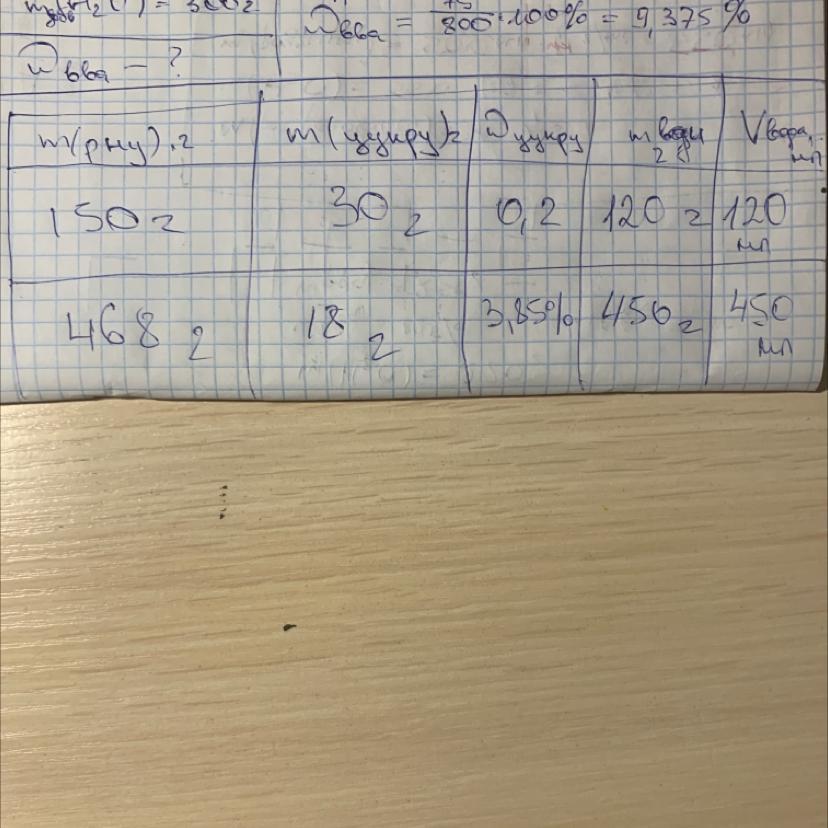 W вва = 75/800 · 100% = 9,375%
W вва - ?
m(р-ну), г m(цукру) г W цукру m води г V води, мл
150 г 30 г 0,2 120 г 120 мл
468 г 18 г 3,85% 450 г 450 мл